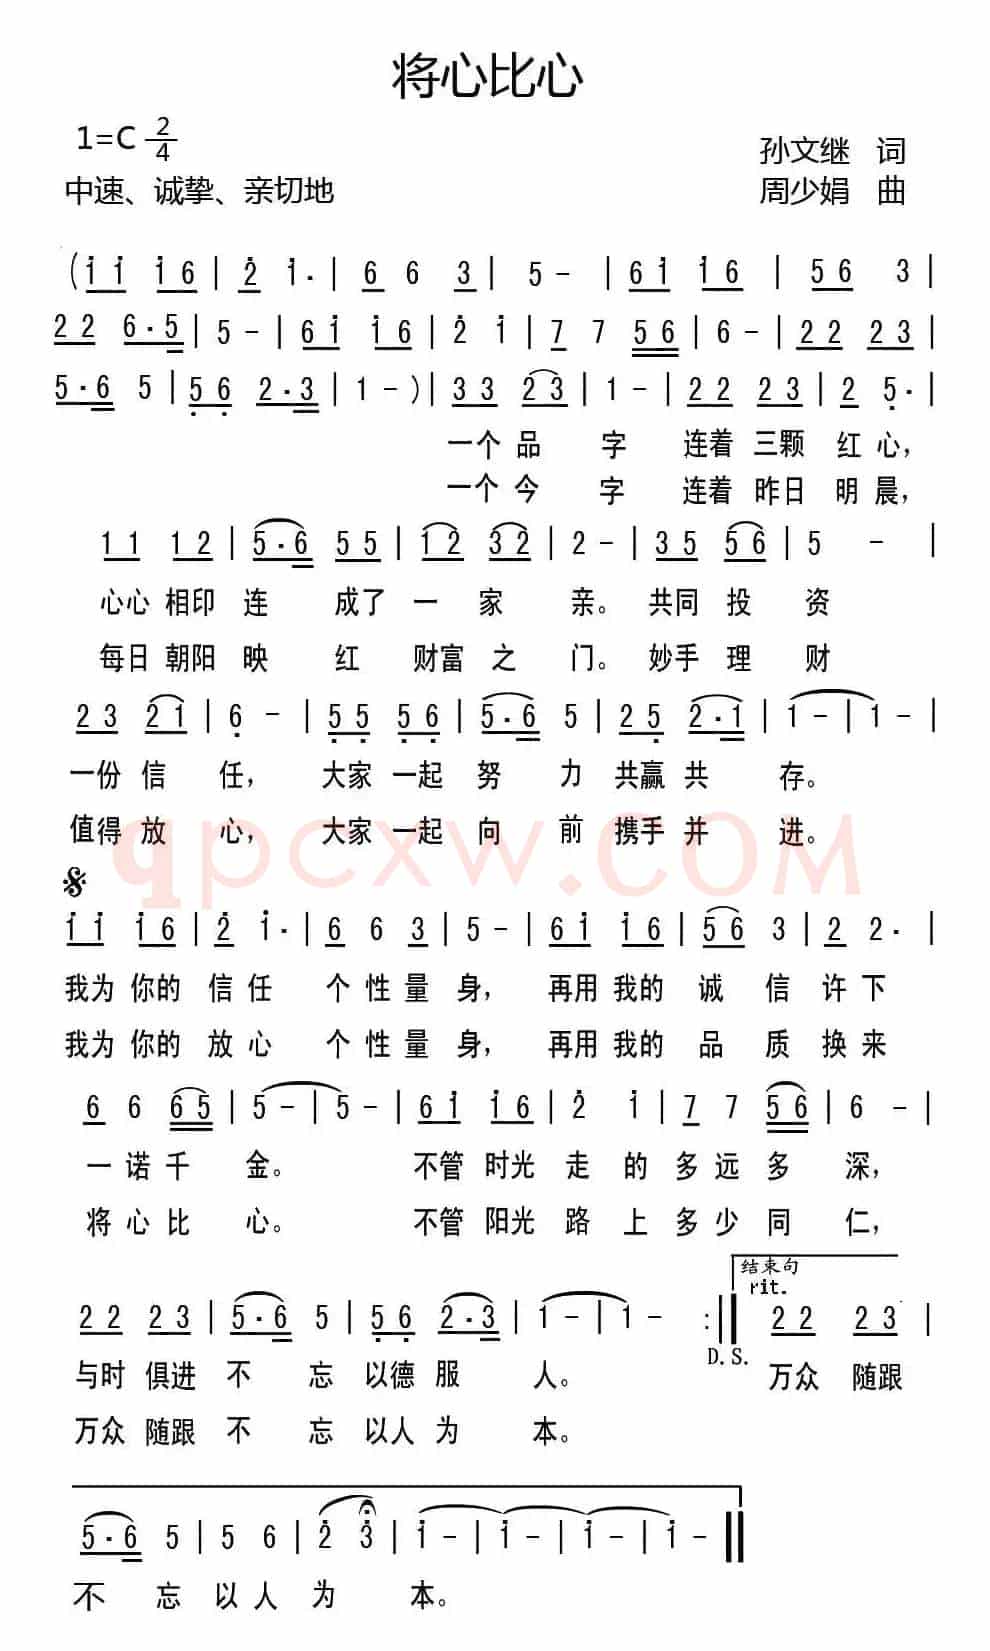 将心比心
1=C 2/4
孙文继 词
中速、诚挚、亲切地
周少娟 曲
(i i i 6 | 2 i. | 6 6 3 | 5 - | 6 i i 6 | 5 6 3 |
2 2 6.5 | 5 - | 6 i i 6 | 2 i | 7 7 5 6 | 6 - | 2 2 2 3 |
5.6 5 | 5 6 2.3 | 1 - ) | 3 3 2 3 | 1 - | 2 2 2 3 | 2 5. |
一个 品 字 连着 三颗 红 心,
一个 今 字 连着 昨日 明 晨,
1 1 1 2 | 5.6 5 5 | 1 2 3 2 | 2 - | 3 5 5 6 | 5 - |
心心 相印 连 成了 一 家 亲。 共同 投 资
每日 朝阳 映 红 财富 之 门。 妙手 理 财
2 3 2 1 | 6 - | 5 5 5 6 | 5.6 5 | 2 5 2.1 | 1 - | 1 - |
一份 信 任, 大家 一起 努 力 共赢 共 存。
值得 放 心, 大家 一起 向 前 携手 并 进。
qpcxw.COM
i i i 6 | 2 i. | 6 6 3 | 5 - | 6 i i 6 | 5 6 3 | 2 2. |
我为 你的 信 任 个 性 量 身, 再用 我的 诚 信 许 下
我为 你的 放 心 个 性 量 身, 再用 我的 品 质 换 来
6 6 6 5 | 5 - | 5 - | 6 i i 6 | 2 i | 7 7 5 6 | 6 - |
一 诺 千 金。 不管 时光 走 的 多 远 多 深,
将 心 比 心。 不管 阳光 路 上 多 少 同 仁,
结束句
rit.
2 2 2 3 | 5.6 5 | 5 6 2.3 | 1 - | 1 - :‖ 2 2 2 3 |
D.S.
与时 俱进 不 忘 以德 服 人。 万众 随跟
万众 随跟 不 忘 以人 为 本。
5.6 5 | 5 6 | 2 3 | i - | i - | i - | i - ‖
不 忘 以 人 为 本。